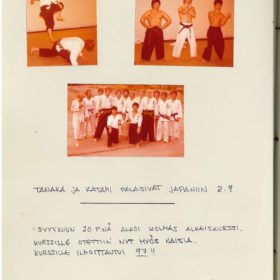 TANAKA JA KATAKI PALASIVAT JAPANIIN 2.9
SYYSKUUN 20 P:NÄ ALKOI KOLMAS ALKEISKURSSI.
KURSSILLE OTETTIIN NYT MYÖS NAISIA.
KURSSILLE ILMOITTAUTUI 97!!